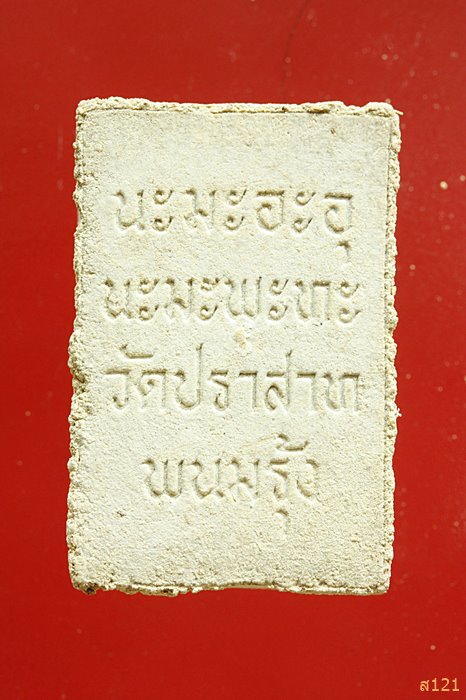 นะมะอะอุ
นะมะพะทะ
วัดปราสาท
พนมรุ้ง
ส121